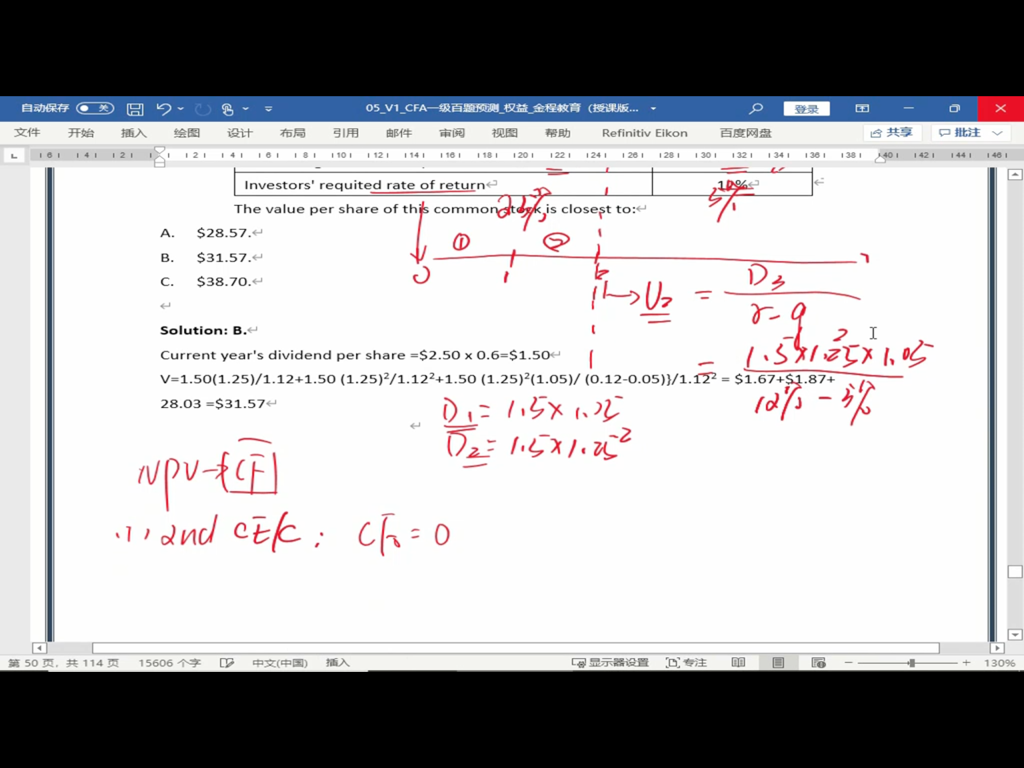 自动保存 关 05_V1_CFA一级百题预测_权益_金程教育（授课版... 登录
文件 开始 插入 绘图 设计 布局 引用 邮件 审阅 视图 帮助 Refinitiv Eikon 百度网盘 共享 批注
Investors' requited rate of return 12%
5%
The value per share of this common stock is closest to:
25%
A. $28.57.
① ②
B. $31.57.
0 1
C. $38.70.
V2 = D3 / r - g
Solution: B.
Current year's dividend per share =$2.50 x 0.6=$1.50
= 1.5×1.25²×1.05 / 12% - 5%
V=1.50(1.25)/1.12+1.50 (1.25)²/1.12²+1.50 (1.25)²(1.05)/ (0.12-0.05)}/1.12² = $1.67+$1.87+
28.03 =$31.57
D1 = 1.5×1.25
D2 = 1.5×1.25²
NPV→CF
(1) 2nd CE/C; CF0 = 0
第 50 页，共 114 页 15606 个字 中文(中国) 插入 显示器设置 专注 130%